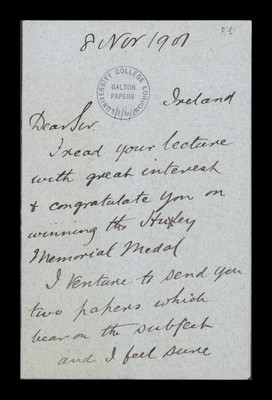 8 Nov 1901
UNIVERSITY COLLEGE LONDON
GALTON
PAPERS
Ireland
Dear Sir.
I read your lecture
with great interest
& congratulate you on
winning the Huxley
Memorial Medal
I venture to send you
two papers which
bear on the subject
and I feel sure